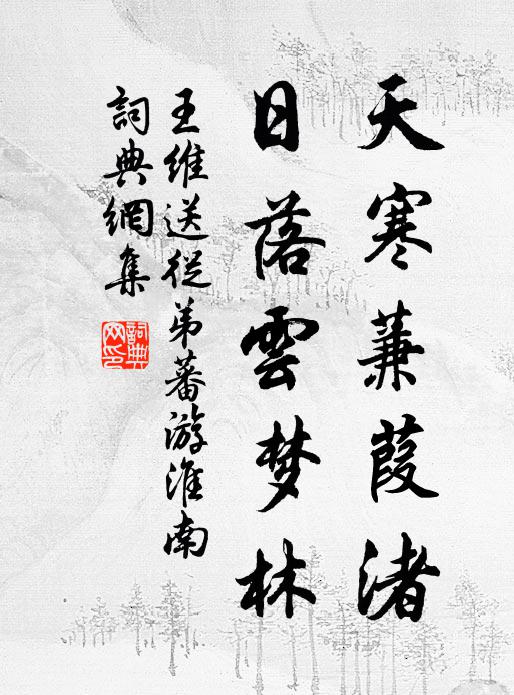 天寒蒹葭渚
日落雲梦林
王维送從弟蕃游淮南
詞典網集
詞典网印